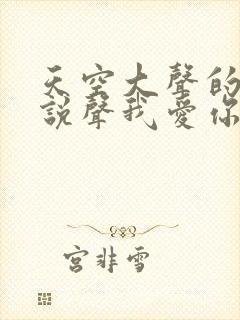 天空大聲的
說聲我愛你
宮非雪